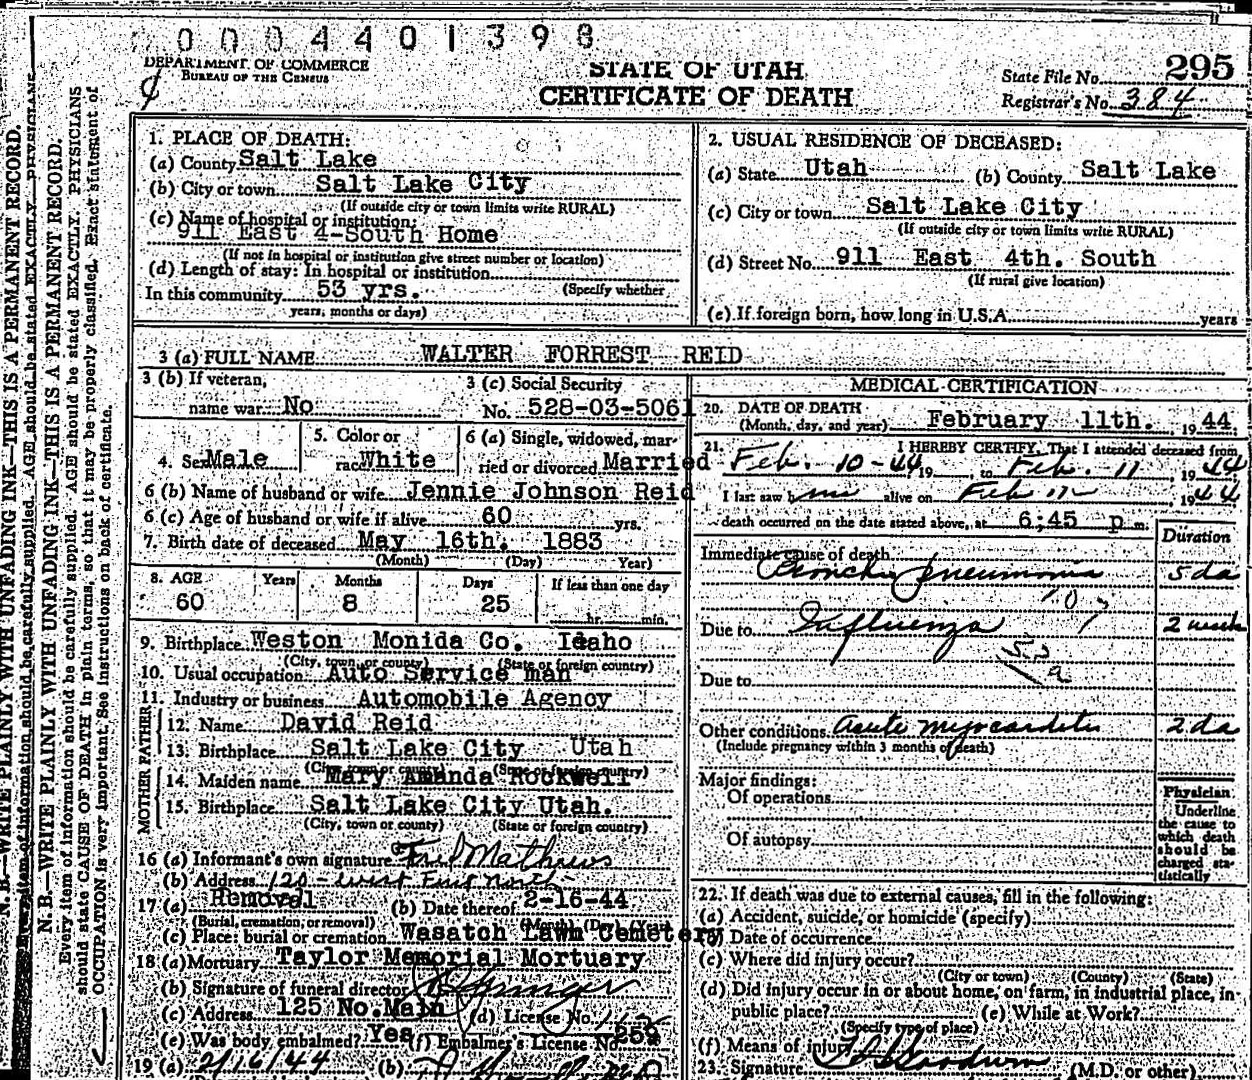 0004401398
DEPARTMENT OF COMMERCE
BUREAU OF THE CENSUS
STATE OF UTAH
CERTIFICATE OF DEATH
State File No. 295
Registrar's No. 384
1. PLACE OF DEATH:
(a) County Salt Lake
(b) City or town Salt Lake City
(If outside city or town limits write RURAL)
(c) Name of hospital or institution:
911 East 4-South Home
(If not in hospital or institution give street number or location)
(d) Length of stay: In hospital or institution
(Specify whether
In this community 53 yrs.
years, months or days)
2. USUAL RESIDENCE OF DECEASED:
(a) State Utah (b) County Salt Lake
(c) City or town Salt Lake City
(If outside city or town limits write RURAL)
(d) Street No. 911 East 4th. South
(If rural give location)
(e) If foreign born, how long in U.S.A. years
3 (a) FULL NAME WALTER FORREST REID
3 (b) If veteran,
name war No
3 (c) Social Security
No. 528-03-5061
4. Sex Male
5. Color or
race White
6 (a) Single, widowed, mar-
ried or divorced Married
6 (b) Name of husband or wife Jennie Johnson Reid
6 (c) Age of husband or wife if alive 60 yrs.
7. Birth date of deceased May 16th. 1883
(Month) (Day) Year)
8. AGE Years Months Days If less than one day
60 8 25 hr. min.
9. Birthplace Weston Monida Co. Idaho
(City, town, or county) (State or foreign country)
10. Usual occupation Auto Service man
11. Industry or business Automobile Agency
FATHER
12. Name David Reid
13. Birthplace Salt Lake City Utah
(City, town or county) (State or foreign country)
MOTHER
14. Maiden name Mary Amanda Rockwell
15. Birthplace Salt Lake City Utah.
(City, town or county) (State or foreign country)
16 (a) Informant's own signature Fred Mathews
(b) Address 120 - West First North
17 (a) Removal (b) Date thereof 2-16-44
(Burial, cremation, or removal) (Month) (Day) (Year)
(c) Place: burial or cremation Wasatch Lawn Cemetery
18 (a) Mortuary Taylor Memorial Mortuary
(b) Signature of funeral director
(c) Address 125 No. Main (d) License No.
(e) Was body embalmed? Yes (f) Embalmer's License No 259
19 (a) 2/16/44 (b)
MEDICAL CERTIFICATION
20. DATE OF DEATH
(Month, day, and year) February 11th. 1944
21. I HEREBY CERTIFY, That I attended deceased from
Feb. 10-44 19 to Feb. 11 1944
I last saw him alive on Feb 11 1944
death occurred on the date stated above, at 6;45 p m.
Duration
Immediate cause of death
Broncho pneumonia 5 da
107
Due to Influenza 2 week
Due to
Other conditions Acute myocarditis 2 da
(Include pregnancy within 3 months of death)
Major findings:
Of operations
Of autopsy
Physician
Underline
the cause to
which death
should be
charged sta-
tistically
22. If death was due to external causes, fill in the following:
(a) Accident, suicide, or homicide (specify)
(b) Date of occurrence
(c) Where did injury occur?
(City or town) (County) (State)
(d) Did injury occur in or about home, on farm, in industrial place, in-
public place? (e) While at Work?
(Specify type of place)
(f) Means of injury
23. Signature (M.D. or other)
N. B.—WRITE PLAINLY WITH UNFADING INK—THIS IS A PERMANENT RECORD.
Every item of information should be carefully supplied. AGE should be stated EXACTLY. PHYSICIANS
N. B.—WRITE PLAINLY WITH UNFADING INK—THIS IS A PERMANENT RECORD.
Every item of information should be carefully supplied. AGE should be stated EXACTLY. PHYSICIANS
should state CAUSE OF DEATH in plain terms, so that it may be properly classified. Exact statement of
OCCUPATION is very important. See instructions on back of certificate.